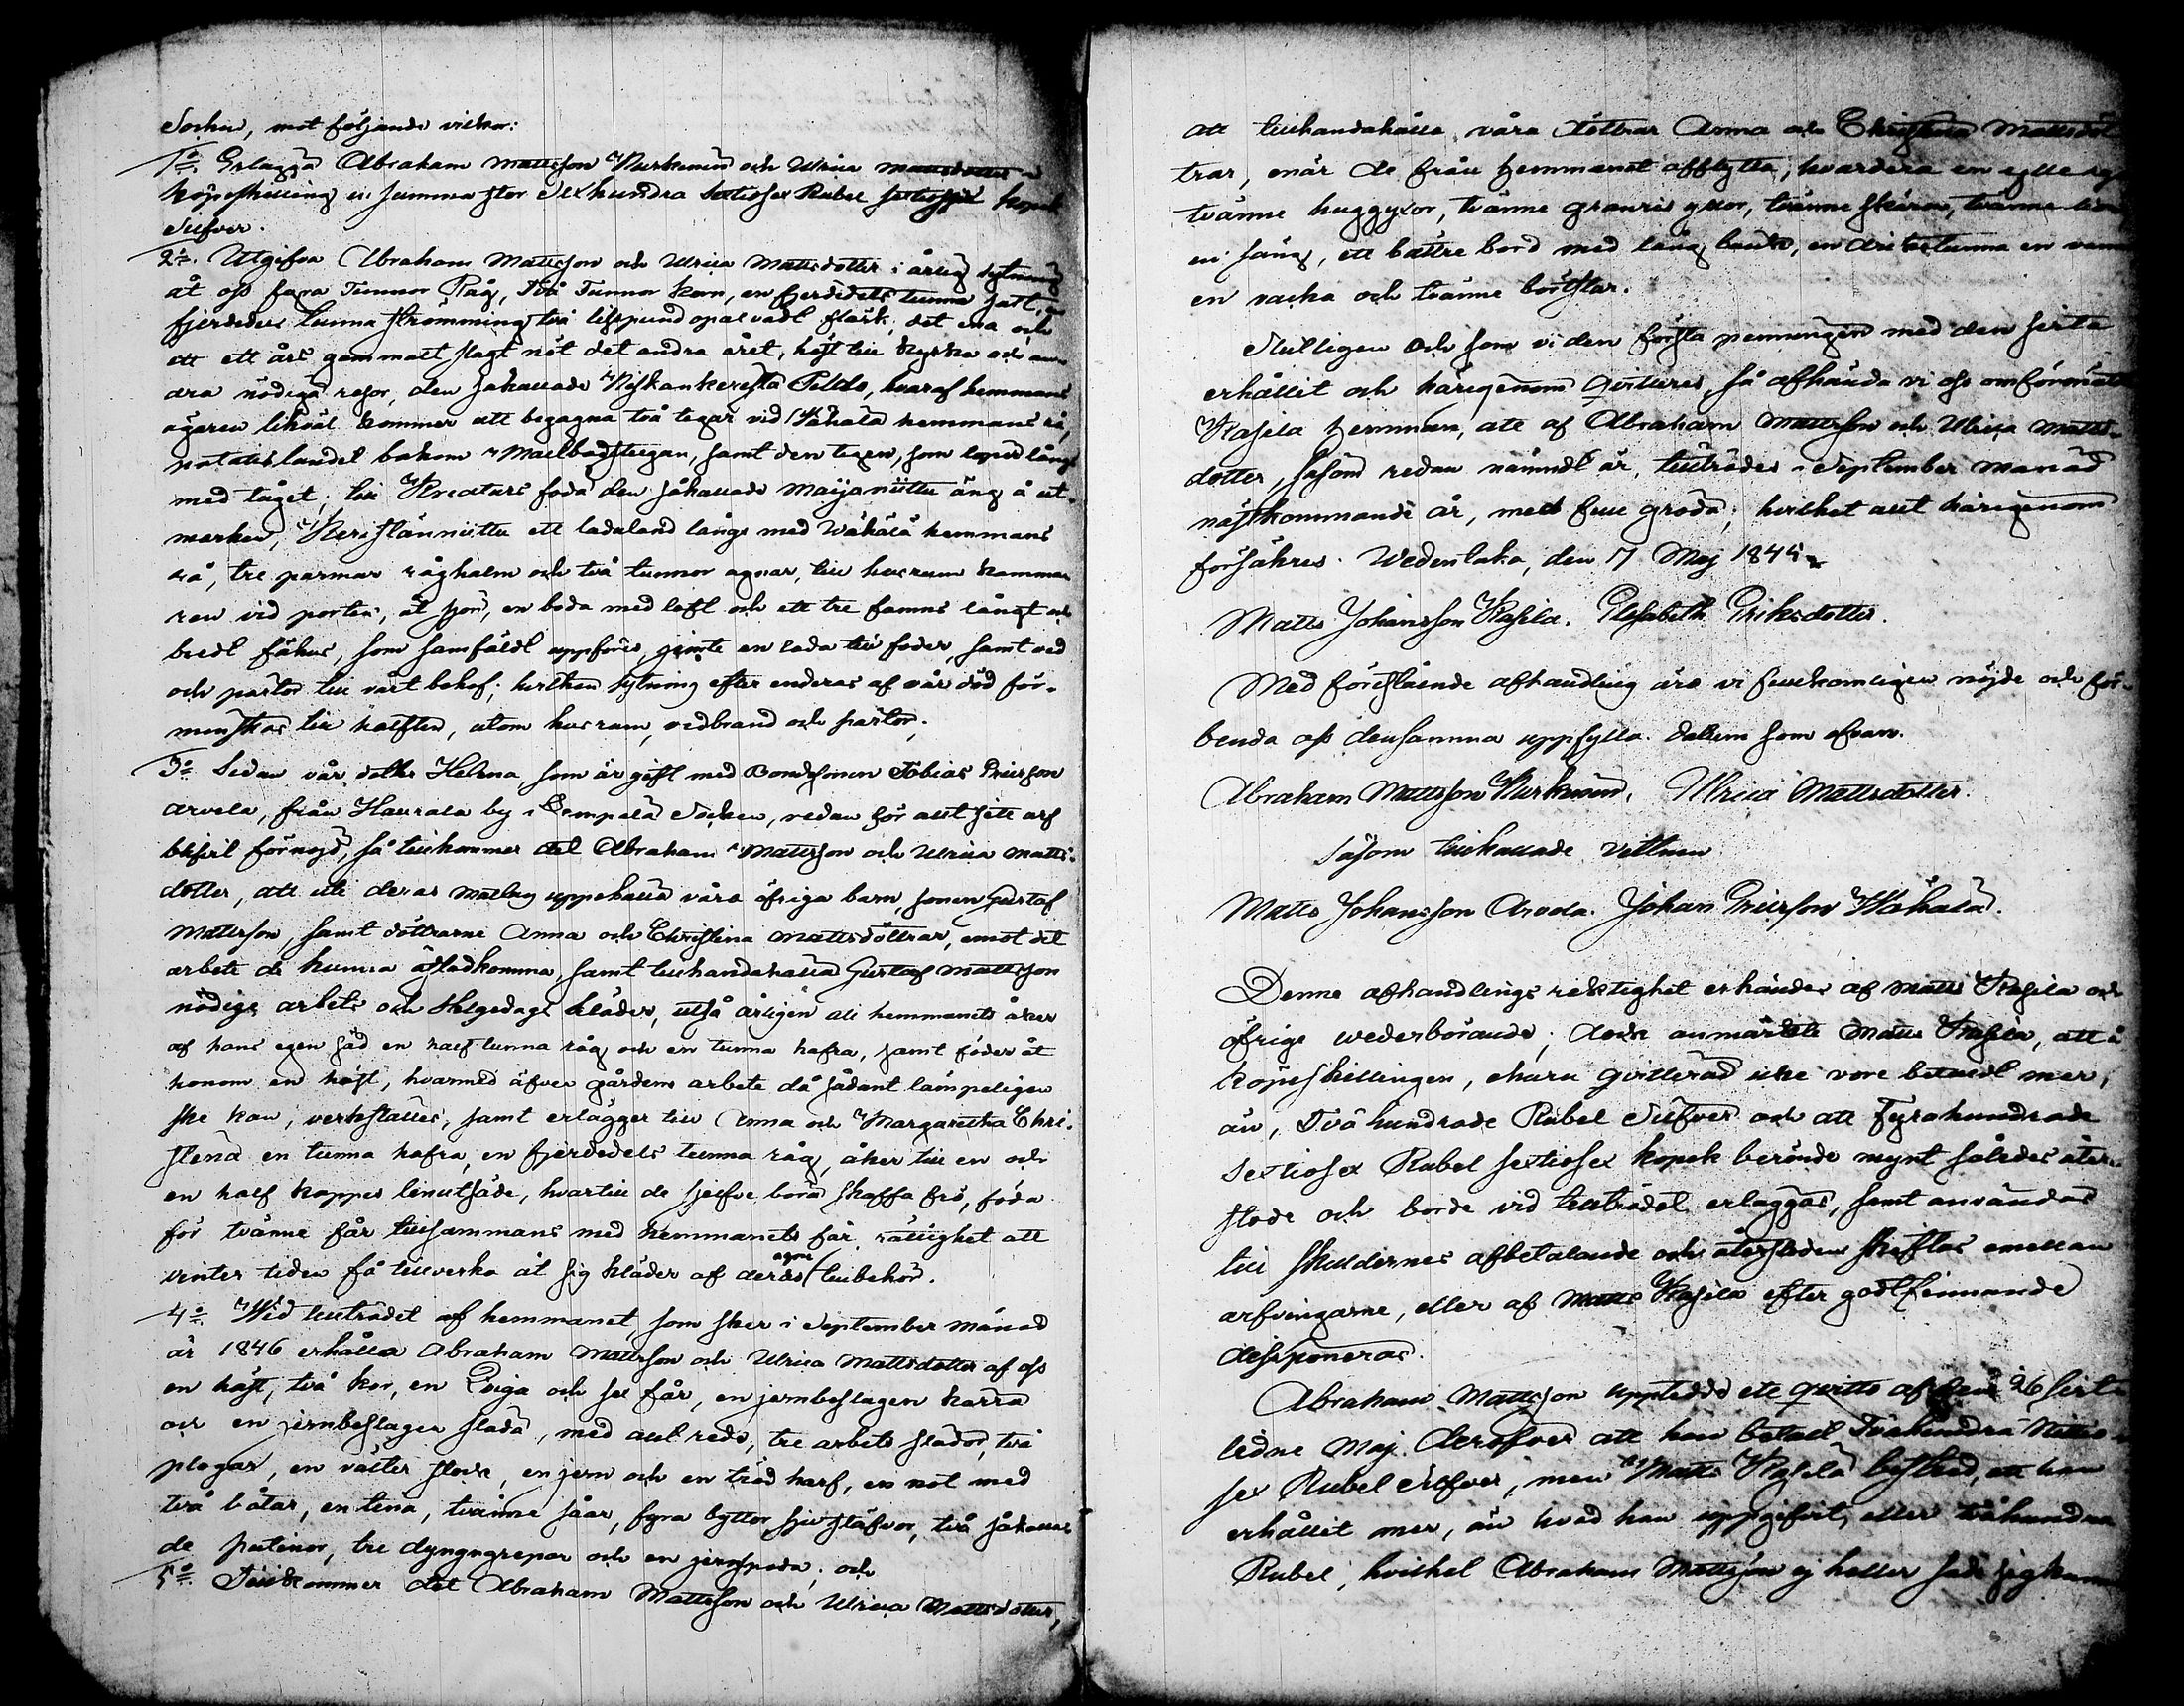 Socken, mot följande vilkor:
1o. Erlägga Abraham Mattsson Kurkinen och Ulrica Mattsdotter i
köpeskilling en summa stor Sexhundra Sextiosex Rubel sextiosex kopek
Silfver.
2o. Utgifva Abraham Mattsson och Ulrica Mattsdotter i årlig sytning
åt oss fyra Tunnor Råg, Två Tunnor korn, en fjerdedels tunna salt, en
fjerdedels tunna strömming två lispund osaltadt fläsk, det ena och
ett ett års gammalt slagt nöt det andra året, häst till kyrka och an
dra nödiga resor, den så kallade Niskankeresta Peldo, hvaraf hemmans
ägaren likväl kommer att begagna två tegar vid Wähälä hemmans rå,
potatislandet bakom Maltbadstugan, samt den tegen, som loper längs
med tåget; till Kreaturs föda den såkallade Maijaniittu äng å ut-
marken, Keristänniittu ett ladaland längs med Wähälä hemmans
rå, tre parmar råghalm och två tunnor agnar, till husrum kamma
ren vid porten, åt sjön, en boda med loft och ett tre famns långt och
bredt fähus, som samfäldt uppföres, jemte en lada till foder, samt ved
och pärtor till vårt behof; hvilken sytning efter enderas af vår död för-
minskas till hälften, utom husrum, vedbrand och pärtor;
3o. Sedan vår dotter Helena, som är gift med Bondesonen Tobias Ericsson
Arvela, från Haurala by i Lempälä Socken, redan för allt sitt arf
blifvit förnöjd, så tillkommer det Abraham Mattsson och Ulrica Matts-
dotter, att uti deras matlag uppehålla våra öfriga barn, sonen Gustaf
Mattsson, samt döttrarne Anna och Christina Mattsdöttrar, emot det
arbete de kunna åstadkomma, samt tillhandahålla Gustaf Mattsson
nödige arbets och Helgedags kläder, utså årligen uti hemmanets åker
af hans egen säd en half tunna råg och en tunna hafra, samt föder åt
honom en häst, hvarmed äfven gårdens arbete då sådant lämpeligen
ske kan, verkställes, samt erlägger till Anna och Margaretha Chri-
stena en tunna hafra, en fjerdedels tunna råg, åker till en och
en half kappes linutsäde, hvartill de sjelfve böra skaffa frö, föda
för tvänne får tillsammans med hemmanets får rättighet att
vinter tiden få tillverka åt sig kläder af deras egne tillbehör.
4o. Wid tillträdet af hemmanet, som sker i September månad
år 1846 erhålla Abraham Mattsson och Ulrica Mattsdotter af oss
en häst, två kor, en Qviga och sex får, en jernbeslagen kärra
och en jernbeslagen släda, med all redo, tre arbets slädor, två
plogar, en vält stock, en jern och en träd harf, en not med
två båtar, en tina, tvänne såar, fyra byttor, sju stäfvor, två såkalla
de putinor, tre dyngngrepar och en jernspada; och
5o. Tillkommer det Abraham Mattsson och Ulrica Mattsdotter,
att tillhandahålla våra döttrar Anna och Christina Mattsdöt
trar, enär de från hemmanet afflytta, hvardera en
tvänne huggyxor, tvänne granris yxor, tvänne skäror, tvänne
en säng, ett bättre bord med lång bänk, en dricktunna en
en vacka och tvänne börstar.
Slutligen och som vi den första penningen med den sista
erhållit och härigenom qvitteres, så afhända vi oss omförmälte
Kasila hemman, att af Abraham Mattsson och Ulrica Matts-
dotter, såsom redan nämndt är, tillträdes i September månad
nästkommande år, med full gröda; hvilket allt härigenom
försäkres. Wedenlaka, den 17 Maj 1845.
Matts Johansson Kasila. Elisabeth Eriksdotter.
Med föreståënde afhandling äro vi fullkomligen nöjde och för-
benda oss densamma uppfylla. Datum som ofvan.
Abraham Mattsson Kurkinen. Ulrica Mattsdotter.
Såsom tillkallade vittnen
Matts Johansson Arvola. Johan Ericsson Wähälä.
Denna afhandlings riktighet erkändes af Matts Kasila och
öfrige wederbörande; dock anmärkte Matts Kasila, att å
köpeskillingen, ehuru qvitterad icke vore betaldt mer,
än, Två hundrade Rubel Silfver och att Fyrahundrade
Sextiosex Rubel sextiosex kopek berörde mynt således åter-
stode och borde vid tillträdet erläggas, samt användas
till skuldernes afbetalande och återstoden skiftas emellan
arfvingarne, eller af Matts Kasila efter godtfinnande
desiponeras.
Abraham Mattsson uppteddo ett qvitto af den 26 sist
ledne Maj. Deröfver att han betalt Tvåhundra
sex Rubel silfver, men Matts Kasila bestred, att han
erhållit mer, än hvad han uppgifvit, eller tvåhundra
Rubel, hvilket Abraham Mattsson ej heller sade sig kunna